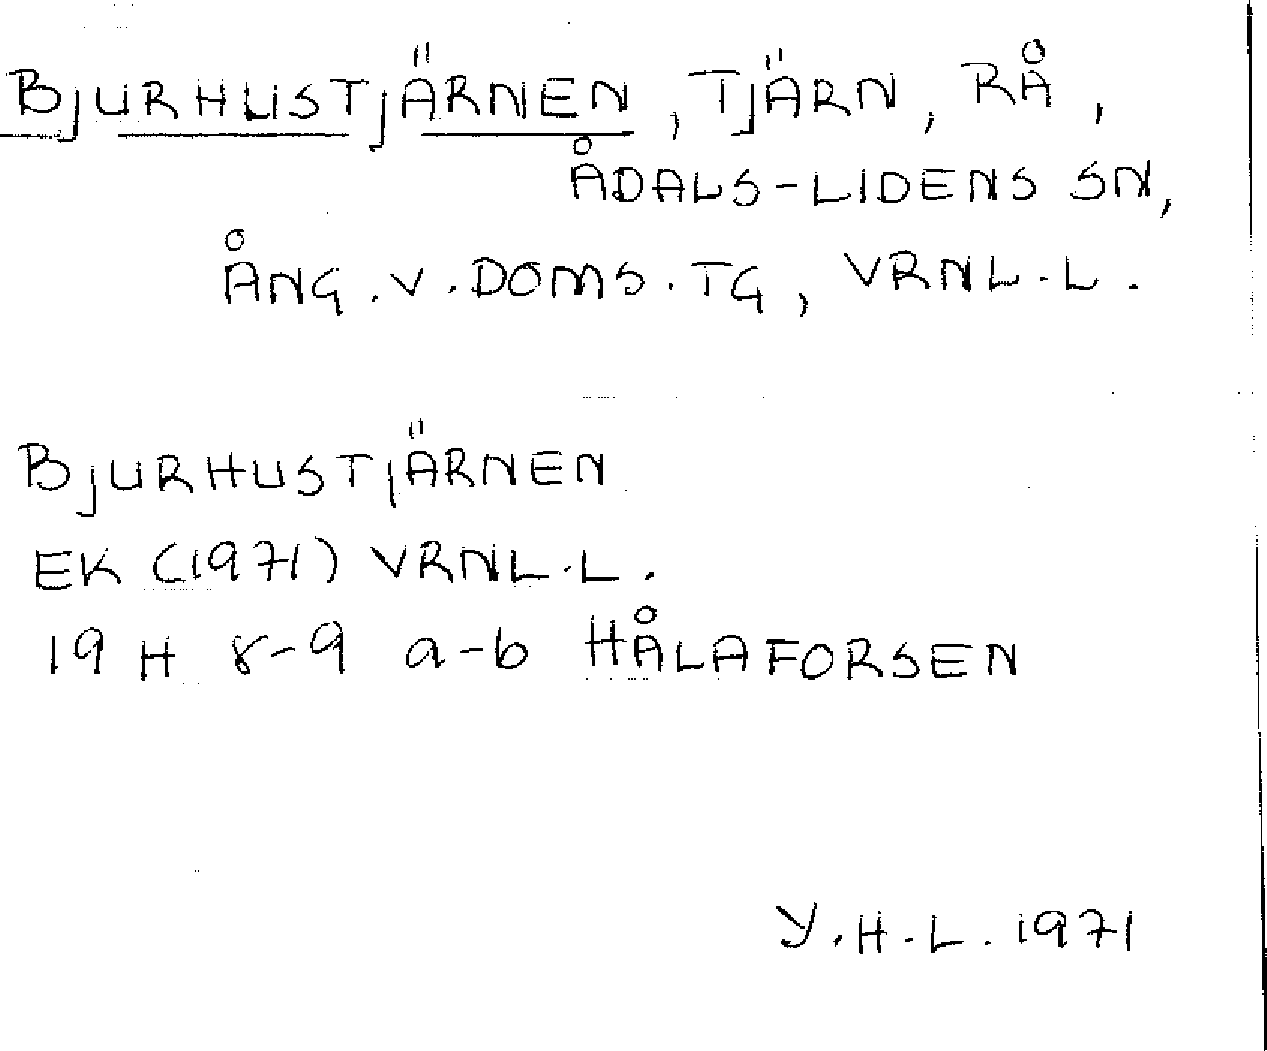 BJURHUSTJÄRNEN, TJÄRN, RÅ,
ÅDALS-LIDENS SN,
ÅNG.V.DOMS.TG, VRNL.L.
BJURHUSTJÄRNEN
EK (1971) VRNL.L.
19 H 8-9 a-b HÅLAFORSEN
Y.H.L. 1971